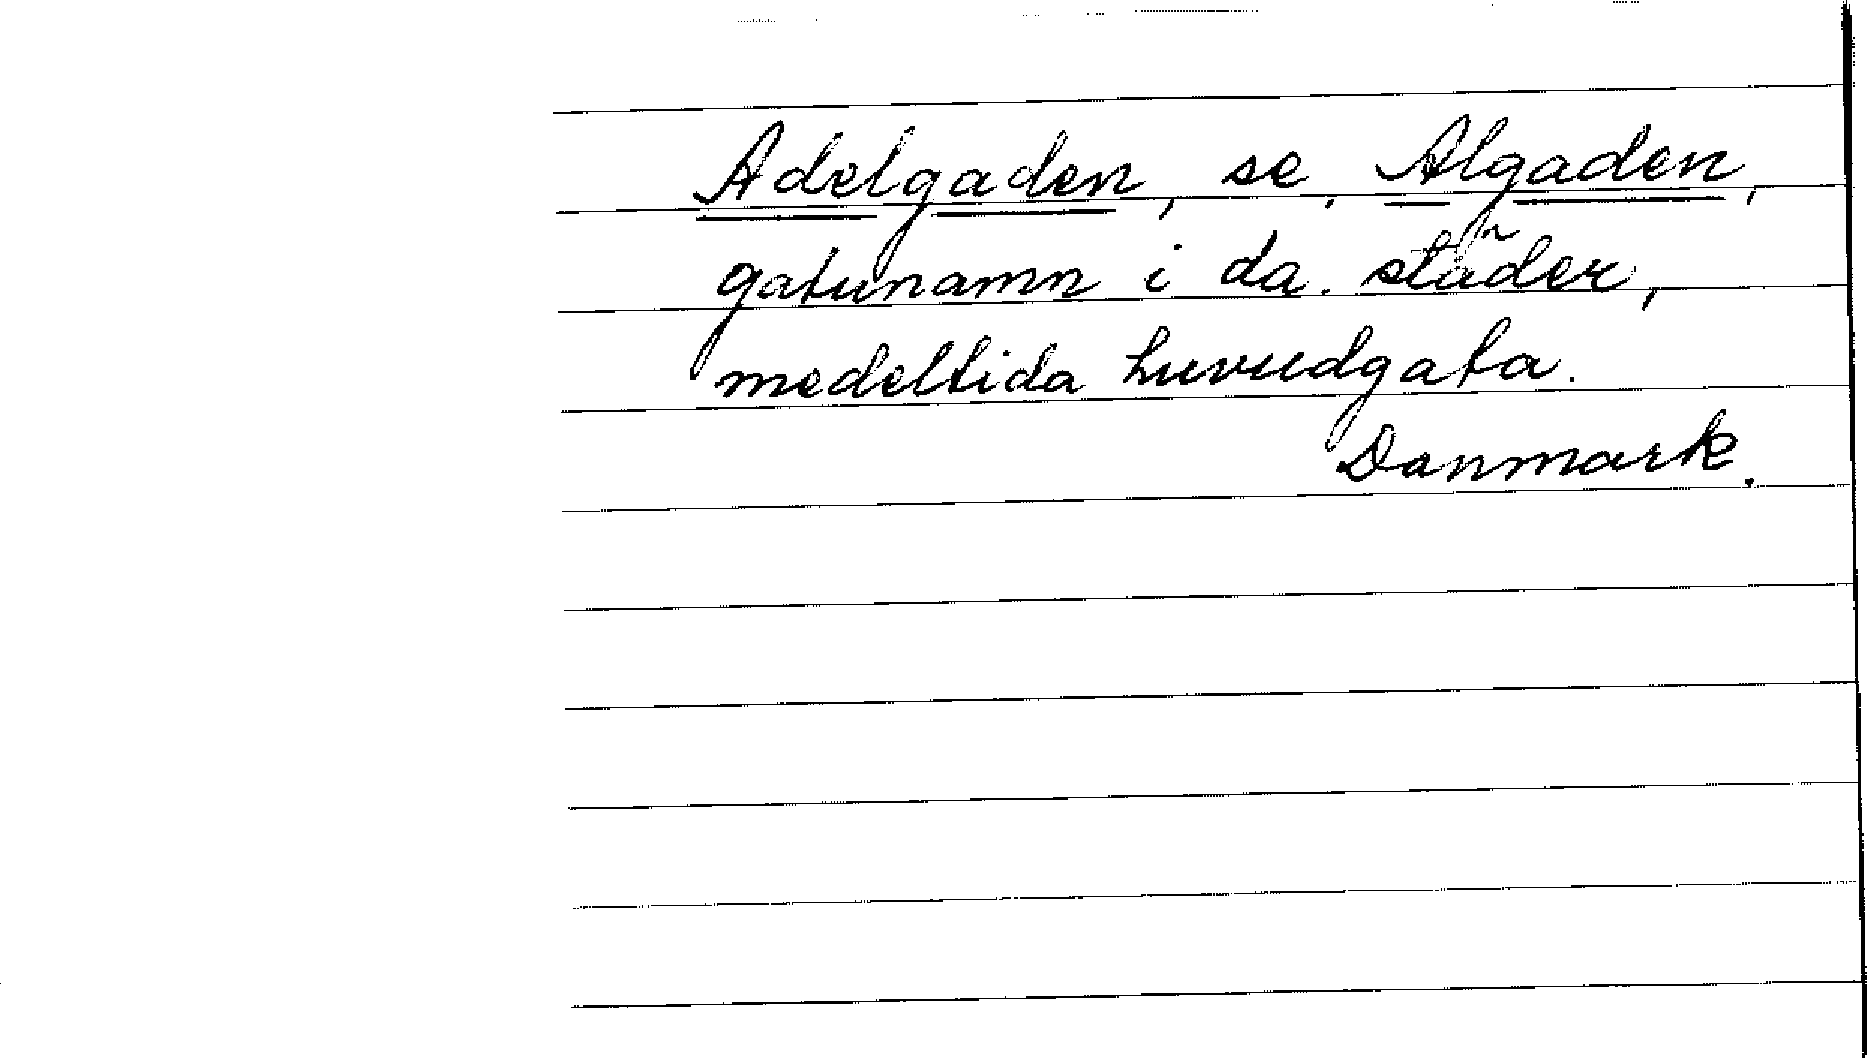 Adelgaden, se Algaden,
gatunamn i da. städer,
medeltida huvudgata.
Danmark.